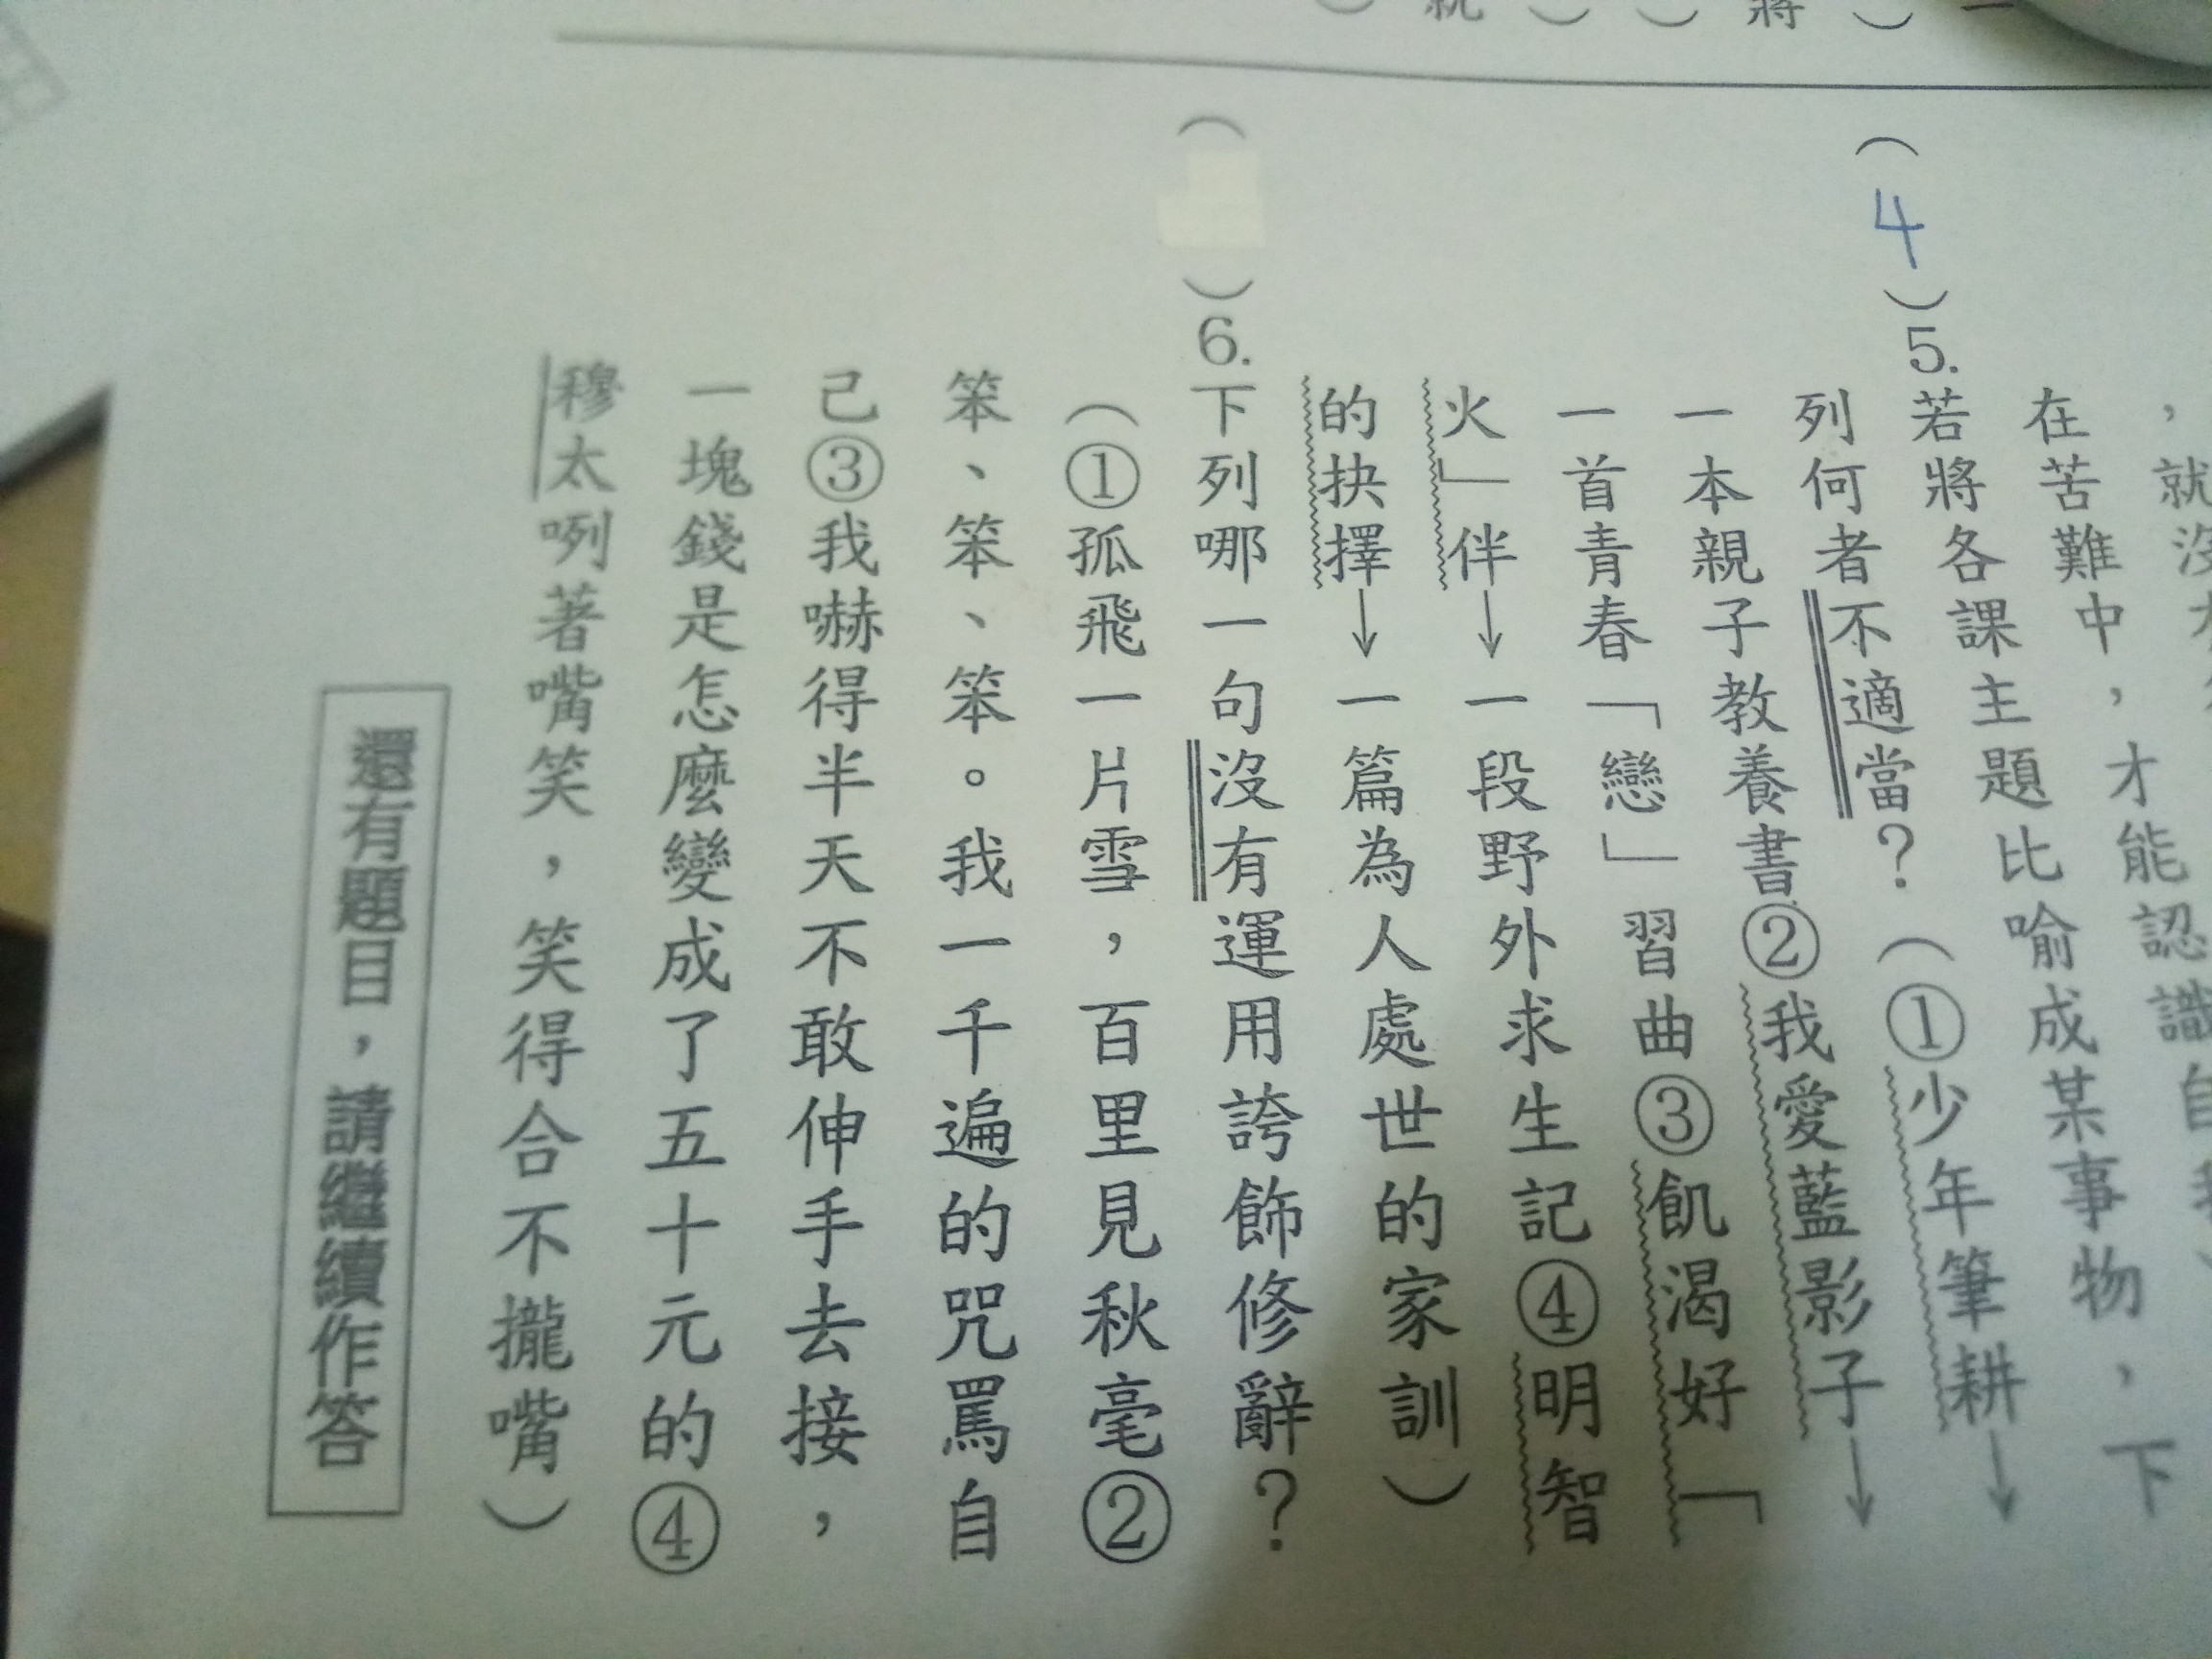 在苦難中，才能認識自
(4)5.若將各課主題比喻成某事物，下
列何者不適當？(①少年筆耕→
一本親子教養書②我愛藍影子→
一首青春「戀」習曲③飢渴好「
火」伴→一段野外求生記④明智
的抉擇→一篇為人處世的家訓)
( )6.下列哪一句沒有運用誇飾修辭？
(①孤飛一片雪，百里見秋毫②
笨、笨、笨。我一千遍的咒罵自
己③我嚇得半天不敢伸手去接，
一塊錢是怎麼變成了五十元的④
穆太咧著嘴笑，笑得合不攏嘴)
還有題目，請繼續作答